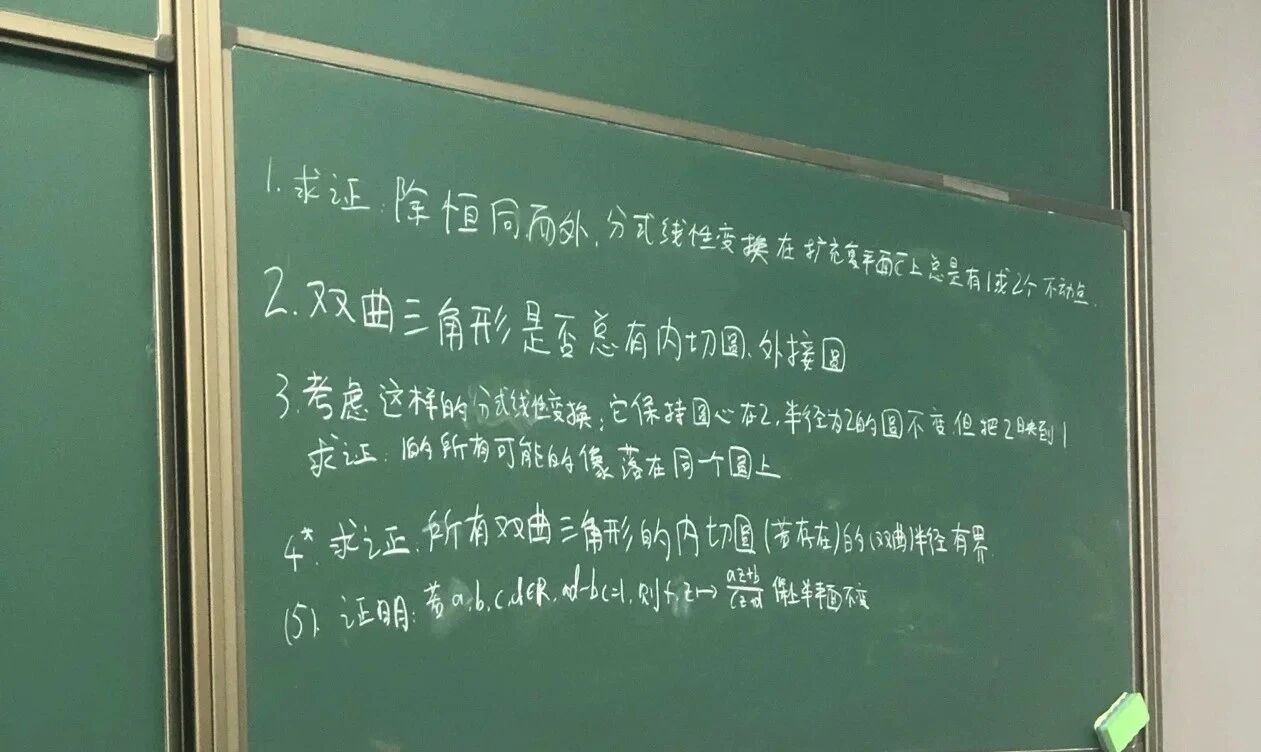 1. 求证: 除恒同而外, 分式线性变换在扩充复平面C̄上总是有1或2个不动点.
2. 双曲三角形是否总有内切圆、外接圆
3. 考虑这样的分式线性变换, 它保持圆心在2, 半径为2的圆不变, 但把2映到1
求证: 1的所有可能的像落在同一个圆上
4*. 求证. 所有双曲三角形的内切圆(若存在)的(双曲)半径有界
(5). 证明: 若a,b,c,d∈R, ad-bc=1, 则f: z↦(az+b)/(cz+d) 保上半平面不变